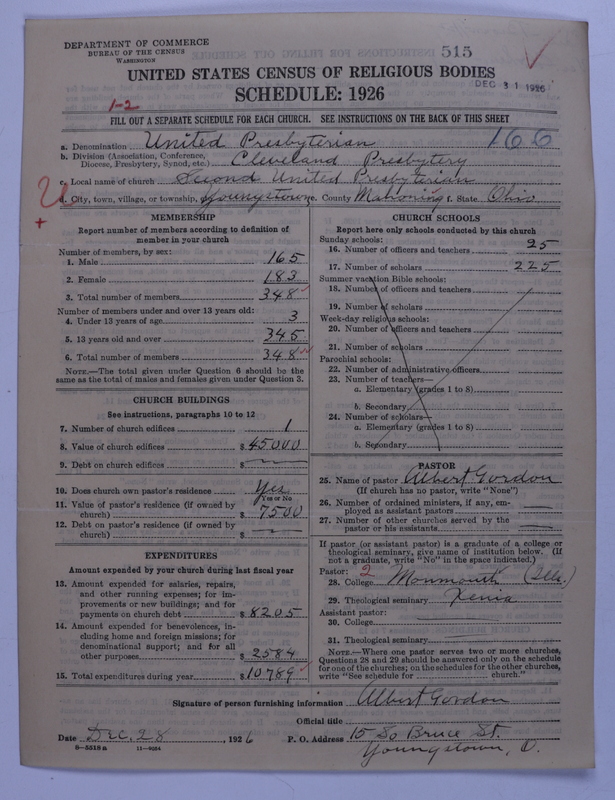 DEPARTMENT OF COMMERCE
BUREAU OF THE CENSUS
WASHINGTON
515
DEC 31 1926
UNITED STATES CENSUS OF RELIGIOUS BODIES
SCHEDULE: 1926
1-2
FILL OUT A SEPARATE SCHEDULE FOR EACH CHURCH. SEE INSTRUCTIONS ON THE BACK OF THIS SHEET
166
a. Denomination United Presbyterian
b. Division (Association, Conference, Diocese, Presbytery, Synod, etc.) Cleveland Presbytery
c. Local name of church Second United Presbyterian
d. City, town, village, or township, Youngstown e. County Mahoning f. State Ohio
MEMBERSHIP
Report number of members according to definition of
member in your church
Number of members, by sex:
1. Male 165
2. Female 183
3. Total number of members 348
Number of members under and over 13 years old:
4. Under 13 years of age 3
5. 13 years old and over 345
6. Total number of members 348
NOTE.—The total given under Question 6 should be the
same as the total of males and females given under Question 3.
CHURCH BUILDINGS
See instructions, paragraphs 10 to 12
7. Number of church edifices 1
8. Value of church edifices $45000
9. Debt on church edifices $ —
10. Does church own pastor's residence Yes
Yes or No
11. Value of pastor's residence (if owned by
church) $ 7500
12. Debt on pastor's residence (if owned by
church) $ —
EXPENDITURES
Amount expended by your church during last fiscal year
13. Amount expended for salaries, repairs,
and other running expenses; for im-
provements or new buildings; and for
payments on church debt $ 8205
14. Amount expended for benevolences, in-
cluding home and foreign missions; for
denominational support; and for all
other purposes $ 2584
15. Total expenditures during year $ 10789
CHURCH SCHOOLS
Report here only schools conducted by this church
Sunday schools:
16. Number of officers and teachers 25
17. Number of scholars 225
Summer vacation Bible schools:
18. Number of officers and teachers
19. Number of scholars
Week-day religious schools:
20. Number of officers and teachers
21. Number of scholars
Parochial schools:
22. Number of administrative officers
23. Number of teachers—
a. Elementary (grades 1 to 8)
b. Secondary
24. Number of scholars—
a. Elementary (grades 1 to 8)
b. Secondary
PASTOR
25. Name of pastor Albert Gordon
(If church has no pastor, write "None")
26. Number of ordained ministers, if any, em-
ployed as assistant pastors —
27. Number of other churches served by the
pastor or his assistants —
If pastor (or assistant pastor) is a graduate of a college or
theological seminary, give name of institution below. (If
not a graduate, write "No" in the space indicated.)
Pastor: 2
28. College Monmouth (Ills.)
29. Theological seminary Xenia
Assistant pastor:
30. College
31. Theological seminary
NOTE.—Where one pastor serves two or more churches,
Questions 28 and 29 should be answered only on the schedule
for one of the churches; on the schedules for the other churches,
write "See schedule for ______ church."
Signature of person furnishing information Albert Gordon
Official title
Date Dec. 28, 1926 P. O. Address 15 So Bruce St.
8—5518a 11—9034 Youngstown, O.